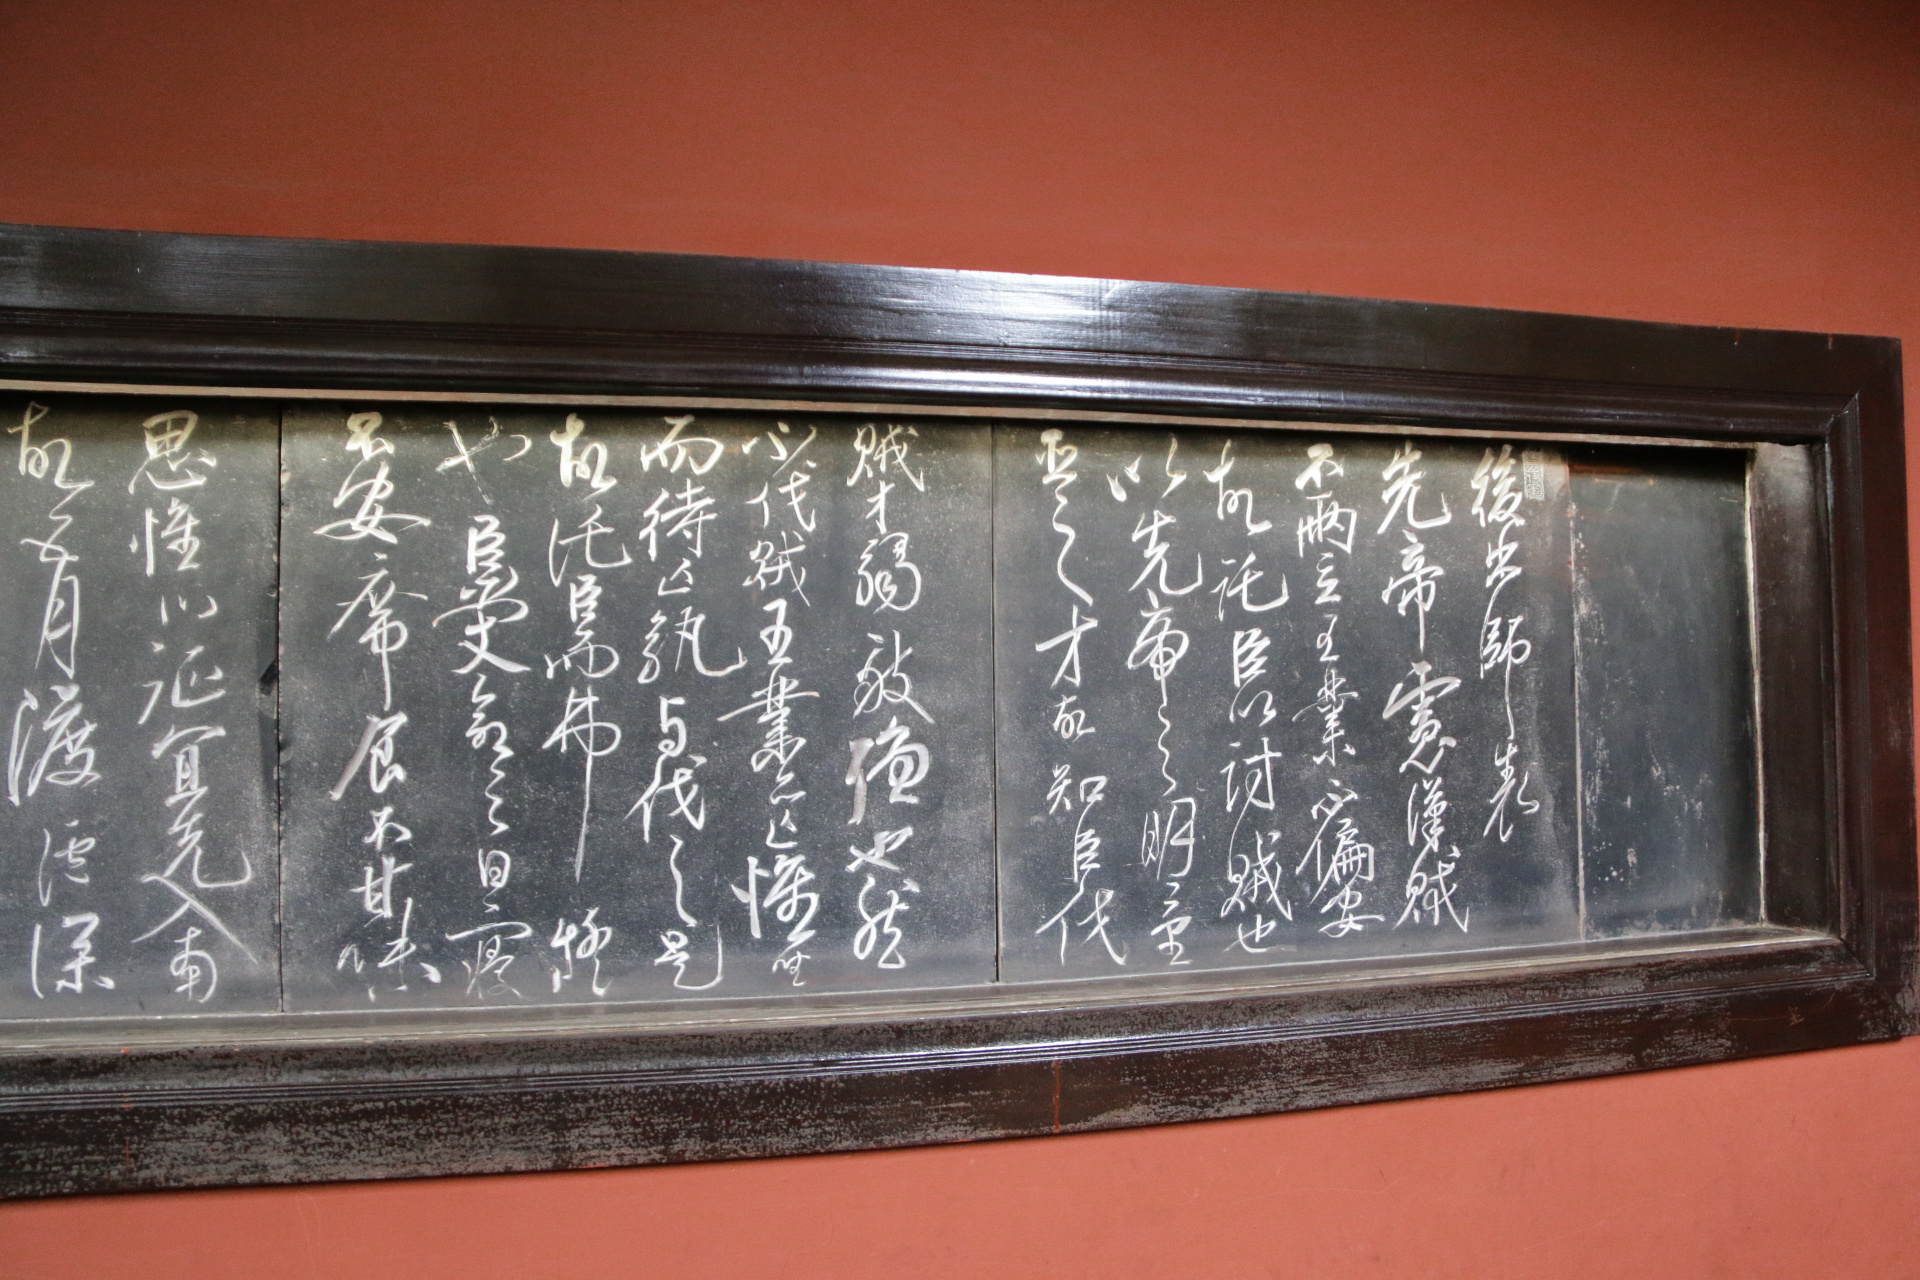 後出師表
先帝慮漢賊
不兩立王業不偏安
故託臣以討賊也
以先帝之明量
臣之才故知臣伐
賊才弱敵強也然
不伐賊王業亦亡惟坐
而待亡孰与伐之是
故託臣而弗疑
也臣受命之日寝
不安席食不甘味
思惟北征宜先入南
故五月渡瀘深